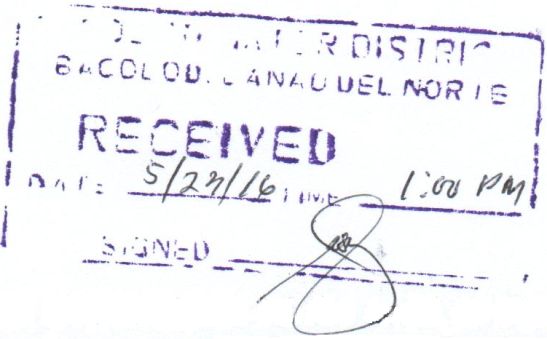 R DISTRIC
BACOLOD, LANAO DEL NORTE
RECEIVED
DATE 5/27/16 TIME 1:00 PM
SIGNED